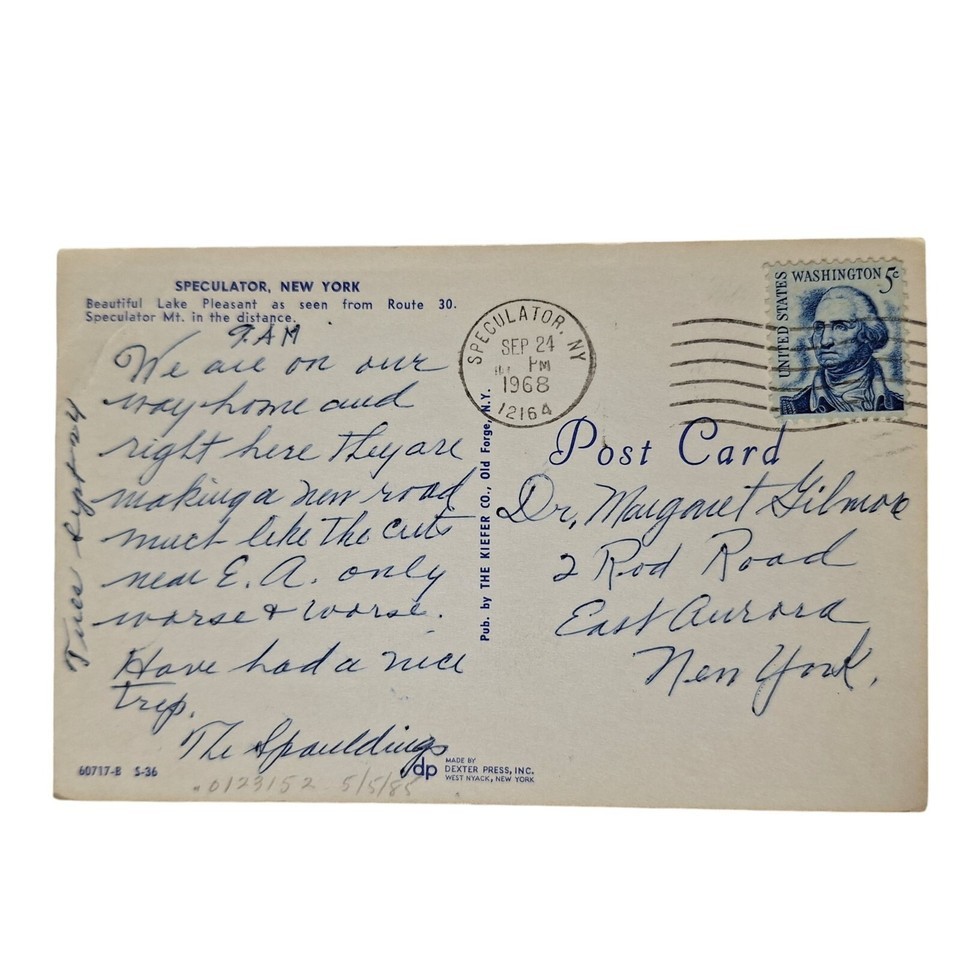 SPECULATOR, NEW YORK
Beautiful Lake Pleasant as seen from Route 30.
Speculator Mt. in the distance.
9 AM
Tues Sept 24
We are on our
way home and
right here they are
making a new road
much like the cuts
near E. A. only
worse & worse.
Have had a nice
trip.
The Spauldings
60717-B S-36
0123152 5/5/85
Pub. by THE KIEFER CO., Old Forge, N.Y.
dp
MADE BY
DEXTER PRESS, INC.
WEST NYACK, NEW YORK
SPECULATOR, NY
SEP 24
PM
1968
12164
UNITED STATES
WASHINGTON 5c
Post Card
Dr. Margaret Gilmore
2 Rod Road
East Aurora
New York.